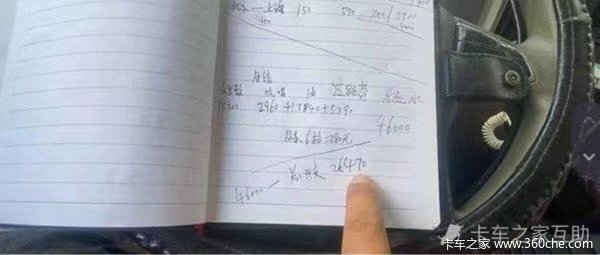 北京—上海 150 570 200/5700
400
月结
公里数 吃喝 油 过路费 总流水
15300 2960+17840+5390 46000
尿素6掐=280元
46000— 总开支 26470
卡车之家互助
卡车之家 www.360che.com